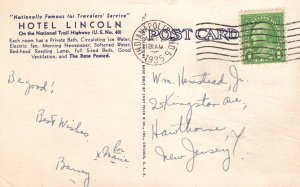 "Nationally Famous for Travelers' Service"
HOTEL LINCOLN
On the National Trail Highway (U. S. No. 40)
Each room has a Private Bath, Circulating Ice Water,
Electric fan, Morning Newspaper, Softened Water,
Bed-head Reading Lamp, Full Sized Beds, Good
Ventilation and The Rate Posted.
POST CARD
INDIANAPOLIS
AM
1935
Be good!
Best Wishes
for
x Marie
Barney
Wm Hemstead, Jr.
2 Kingston Ave
Hawthorne,
New Jersey